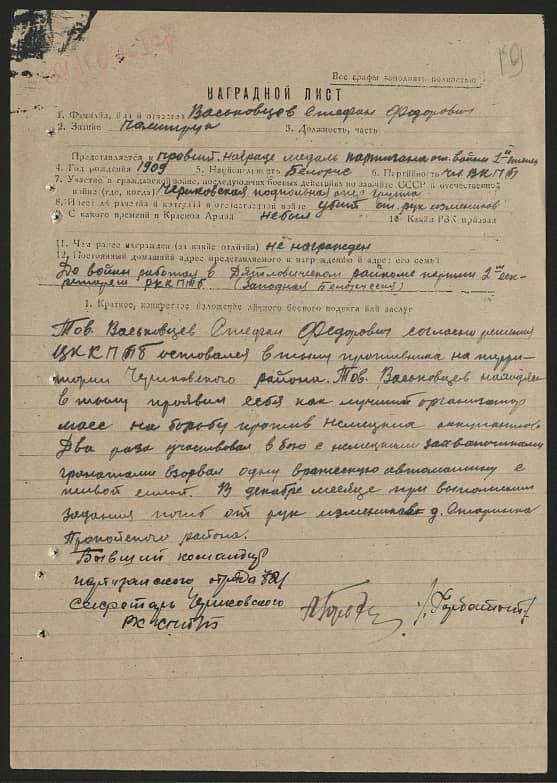 19
Все графы заполнять полностью
НАГРАДНОЙ ЛИСТ
1. Фамилия, имя и отчество Васьковцев Стефан Федорович
2. Звание политрук 3. Должность, часть
Представляется к правит. награде медаль партизана от. войны 1-ой степ
4. Год рождения 1909 5. Национальность Белорус 6. Партийность чл ВКПБ
7. Участие в гражданской войне, последующих боевых действиях по защите СССР и отечественной
войне (где, когда) Чериковская подпольная группа
8. Имеет ли ранения и контузии в отечественной войне убит от рук изменников
9. С какого времени в Красной Армии не был 10. Каким РВК призван
11. Чем ранее награжден (за какие отличия) не награжден
12. Постоянный домашний адрес представляемого к награждению и адрес его семьи
До войны работал в Дятловичском райкоме партии 2-ым сек-
ретарем РККПБ (Западная Белоруссия)
1. Краткое, конкретное изложение личного боевого подвига или заслуг
Тов. Васьковцев Стефан Федорович согласно решения
ЦККПБ оставался в тылу противника на терри-
тории Чериковского района. Тов. Васьковцев находясь
в тылу проявил себя как лучший организатор
масс на борьбу против немецких оккупантов
Два раза участвовал в бою с немецкими захватчиками
гранатами взорвал одну вражескую автомашину с
живой силой. В декабре месяце при выполнении
задания погиб от рук изменников д. Старинка
Пропойского района.
Бывший командир
партизанского отряда
секретарь Чериковского
РК КП(б)Б